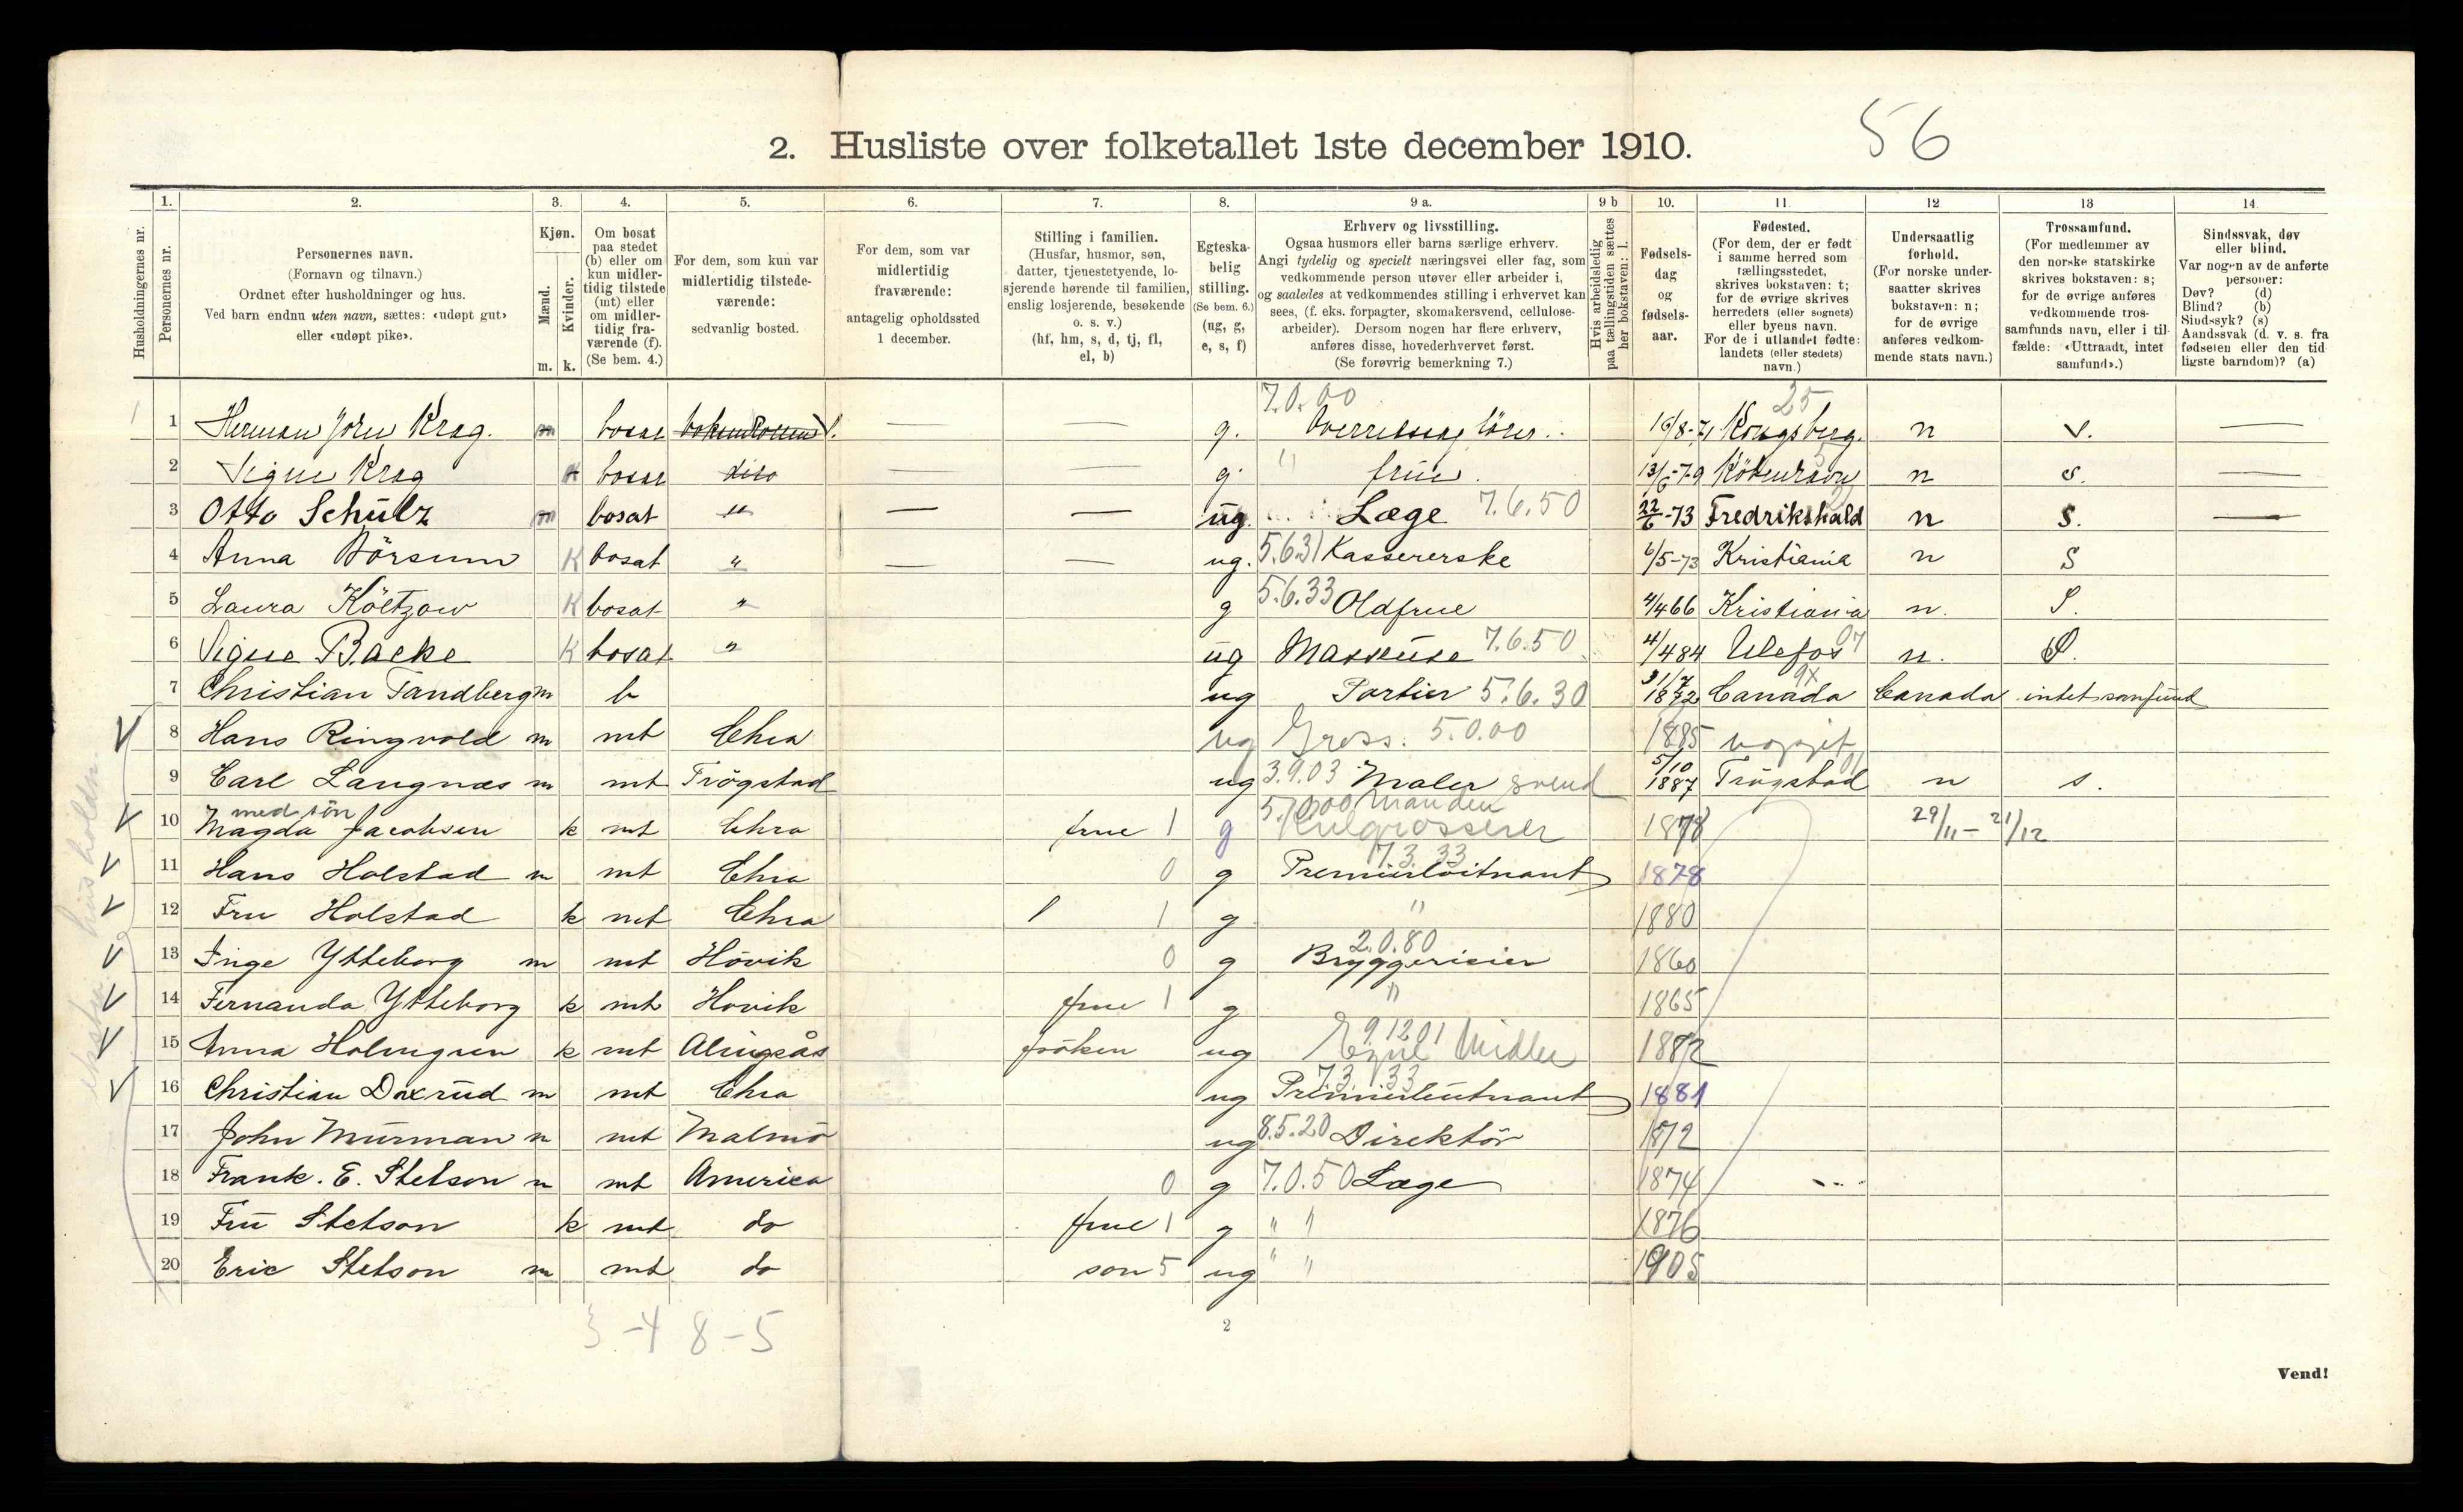 56
2. Husliste over folketallet 1ste december 1910.
Husholdningernes nr.
1. Personernes nr.
2.
Personernes navn.
(Fornavn og tilnavn.)
Ordnet efter husholdninger og hus.
Ved barn endnu uten navn, sættes: «udøpt gut»
eller «udøpt pike».
3.
Kjøn.
Mænd. m.
Kvinder. k.
4.
Om bosat
paa stedet
(b) eller om
kun midler-
tidig tilstede
(mt) eller
om midler-
tidig fra-
værende (f).
(Se bem. 4.)
5.
For dem, som kun var
midlertidig tilstede-
værende:
sedvanlig bosted.
6.
For dem, som var
midlertidig
fraværende:
antagelig opholdssted
1 december.
7.
Stilling i familien.
(Husfar, husmor, søn,
datter, tjenestetyende, lo-
sjerende hørende til familien,
enslig losjerende, besøkende
o. s. v.)
(hf, hm, s, d, tj, fl,
el, b)
8.
Egteska-
belig
stilling.
(Se bem. 6.)
(ug, g,
e, s, f)
9 a.
Erhverv og livsstilling.
Ogsaa husmors eller barns særlige erhverv.
Angi tydelig og specielt næringsvei eller fag, som
vedkommende person utøver eller arbeider i,
og saaledes at vedkommendes stilling i erhvervet kan
sees, (f. eks. forpagter, skomakersvend, cellulose-
arbeider). Dersom nogen har flere erhverv,
anføres disse, hovederhvervet først.
(Se forøvrig bemerkning 7.)
9 b
Hvis arbeidsledig
paa tællingstiden sættes
her bokstaven: l.
10.
Fødsels-
dag
og
fødsels-
aar.
11
Fødested.
(For dem, der er født
i samme herred som
tællingsstedet,
skrives bokstaven: t;
for de øvrige skrives
herredets (eller sognets)
eller byens navn.
For de i utlandet fødte:
landets (eller stedets)
navn.)
12
Undersaatlig
forhold.
(For norske under-
saatter skrives
bokstaven: n;
for de øvrige
anføres vedkom-
mende stats navn.)
13
Trossamfund.
(For medlemmer av
den norske statskirke
skrives bokstaven: s;
for de øvrige anføres
vedkommende tros-
samfunds navn, eller i til-
fælde: «Uttraadt, intet
samfund».)
14.
Sindssvak, døv
eller blind.
Var nogen av de anførte
personer:
Døv? (d)
Blind? (b)
Sindssyk? (s)
Aandssvak (d. v. s. fra
fødselen eller den tid-
ligste barndom)? (a)
7.0.00 25
1 Krag. m bosat — — g. 16/8-71 Kongsberg. n s. —
2 Signe Krag k bosat dito — — g. " frue. 13/6-79 n s. —
3 Otto Schulz m bosat " — — ug. Læge 7.6.50 22/6-73 Fredrikshald n S. —
4 Anna Börsum K bosat " — — ug. 5.6.31 Kassererske 6/5-73 Kristiania n S
5 Laura Költzow K bosat " g 5.6.33 Oldfrue 4/4 66 Kristiania n. S.
6 Signe Backe K bosat " ug Massøuse 7.6.50 4/4 84 Ulefos 07 n. S.
7 Christian Tandberg m b ug Portier 5.6.30 31/7 1872 Canada Canada intet samfund
8 Hans Ringvold m mt Chra ug Gross. 5.0.00 1885 uopgit
9 Carl Langnæs m mt Trögstad ug 3.9.03 Maler svend 5/10 1887 Trögstad n s.
med sön 5.0.00 Manden
10 Magda Jacobsen k mt Chra frue 1 g Kulgrosserer 1878 29/11 – 21/12
7.3.33
11 Hans Holstad m mt Chra 0 g Premierlöitnant 1878
12 Fru Holstad k mt Chra 1 g " 1880
2.0.80
13 Inge Ytteborg m mt Hövik 0 g Bryggerieier 1860
14 Fernanda Ytteborg k mt Hövik frue 1 g " 1865
9.12.01
15 Anna Holmgren k mt Alingsås fröken ug Midler 1882
7.3.33
16 Christian Daxrud m mt Chra ug Premierleutnant 1881
17 John Murman m mt Malmö ug 8.5.20 Direktör 1872
18 Frank. E. Stetson m mt America 0 g 7.0.50 Læge 1874
19 Fru Stetson k mt do frue 1 g " " 1876
20 Eric Stetson m mt do son 5 ug " " 1905
3-4 8-5
2
Vend!